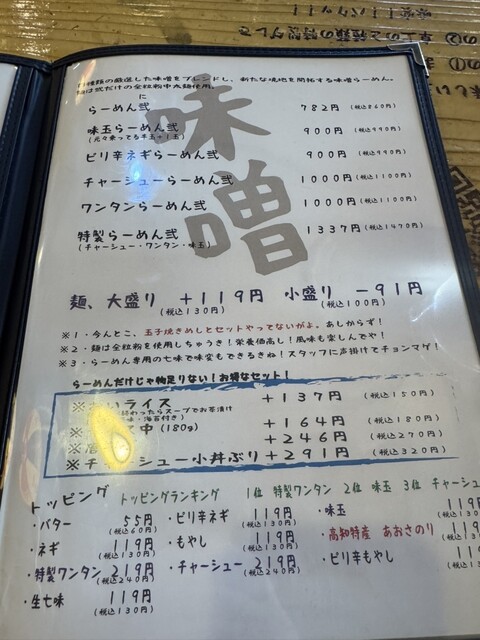 種類の厳選した味噌をブレンドし、新たな境地を開拓する味噌らーめん。
は弐だけの全粒粉中太麺使用。
味噌
に
らーめん弐 782円 (税込860円)
味玉らーめん弐 900円 (税込990円)
(元々乗ってる半玉+1玉)
ピリ辛ネギらーめん弐 900円 (税込990円)
チャーシューらーめん弐 1000円 (税込1100円)
ワンタンらーめん弐 1000円 (税込1100円)
特製らーめん弐 1337円 (税込1470円)
(チャーシュー・ワンタン・味玉)
麺、大盛り +119円 小盛り -91円
(税込130円) (税込100円)
※1・今んとこ、玉子焼きめしとセットやってないがよ。あしからず!
※2・麺は全粒粉を使用しちゅうき!栄養価高し!風味も楽しんでや!
※3・らーめん専用の七味で味変もできるきね!スタッフに声掛けてチョンマゲ!
らーめんだけじゃ物足りない!お得なセット!
※ ライス +137円 (税込150円)
終わったらスープでお茶漬け
・海苔付き)
※ 中(180g) +164円 (税込180円)
※ +246円 (税込270円)
※チャーシュー小丼ぶり +291円 (税込320円)
トッピング トッピングランキング 1位 特製ワンタン 2位 味玉 3位 チャーシュー
・バター 55円 (税込60円) ・ピリ辛ネギ 119円 (税込130円) ・味玉 119円
・ネギ 119円 (税込130円) ・もやし 119円 (税込130円) ・高知特産 あおさのり 119
・特製ワンタン 219円 (税込240円) ・チャーシュー 219円 (税込240円) ・ピリ辛もやし 11
・生七味 119円 (税込130円)